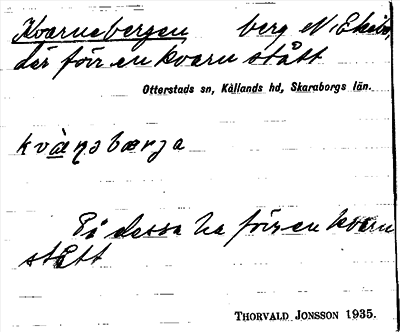 Kvarnebergen berg N. Ekeb.
där förr en kvarn stått
Otterstads sn, Kållands hd, Skaraborgs län.
kvàn̥əbærja
På dessa ha förr en kvarn
stått
THORVALD JONSSON 1935.